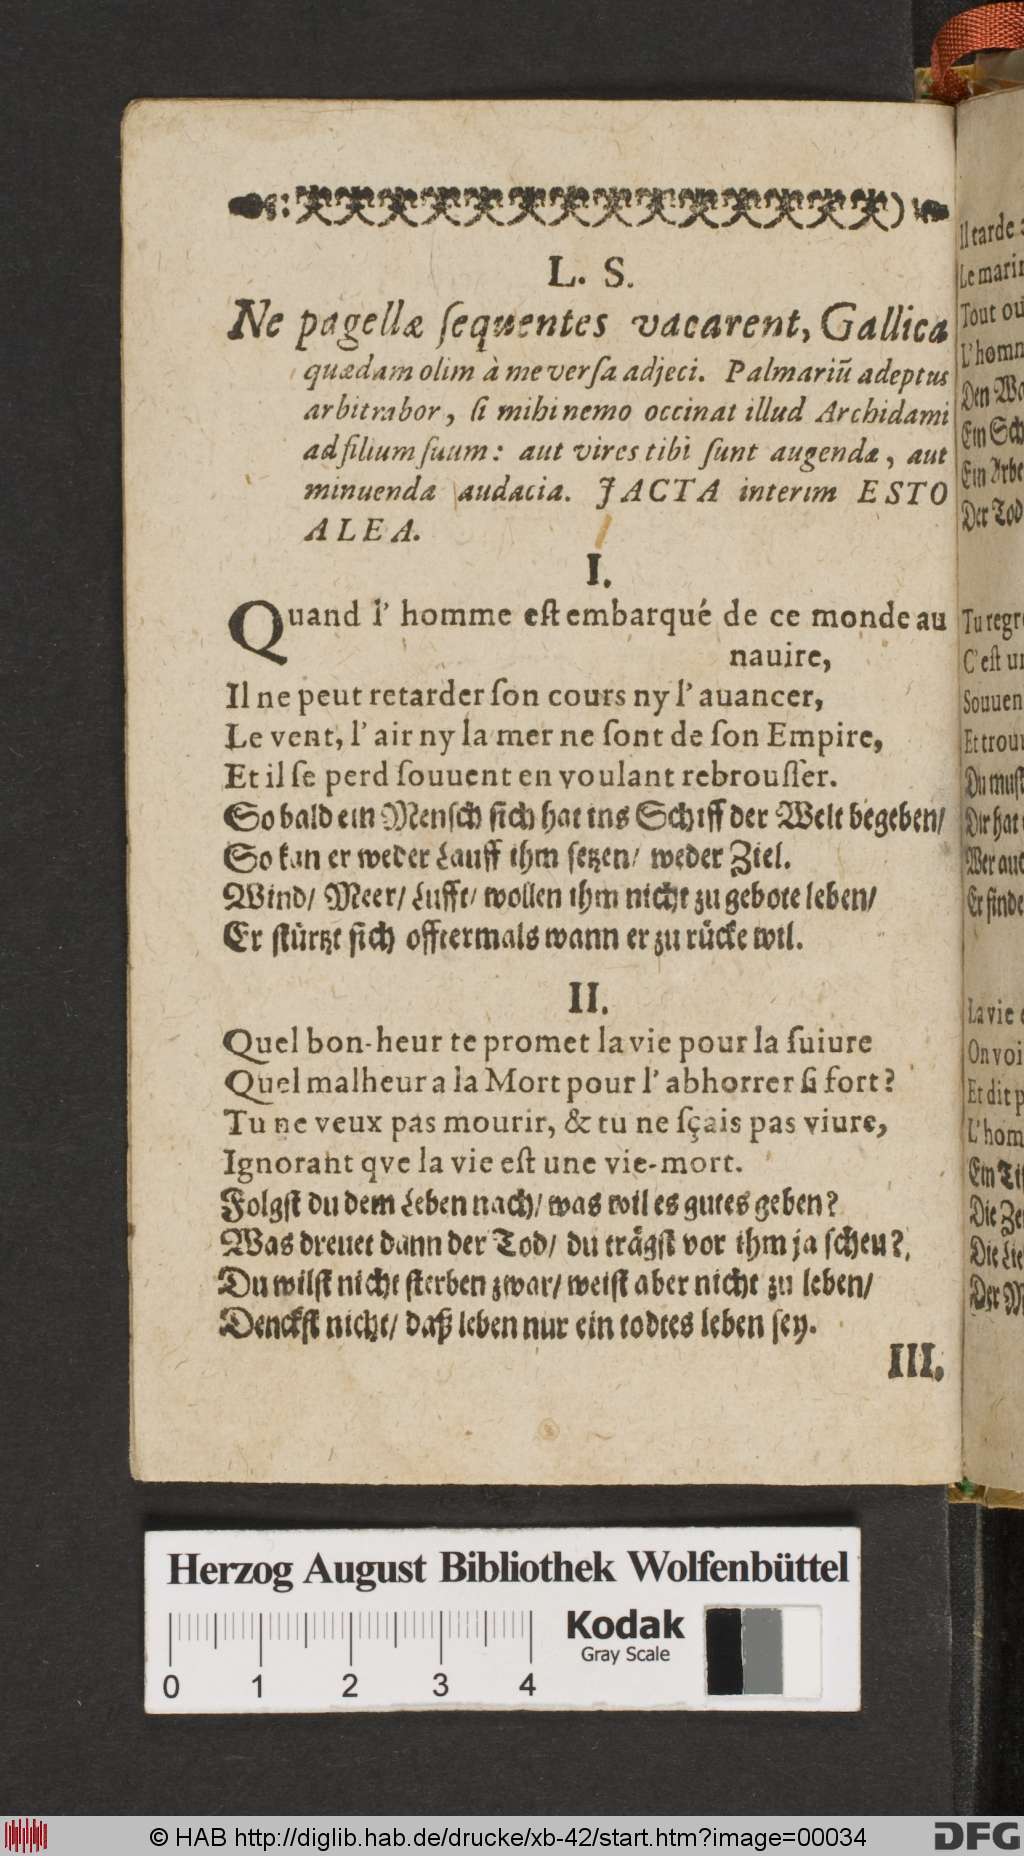 L. S.
Ne pagellæ ſequentes vacarent, Gallica
quædam olim à me verſa adjeci. Palmariū adeptus
arbitrabor, ſi mihi nemo occinat illud Archidami
ad filium ſuum: aut vires tibi ſunt augendæ, aut
minuenda audacia. JACTA interim ESTO
ALEA.
I.
Quand l' homme eſt embarqué de ce monde au
nauire,
Il ne peut retarder ſon cours ny l' auancer,
Le vent, l' air ny la mer ne ſont de ſon Empire,
Et il ſe perd ſouuent en voulant rebrouſſer.
So bald ein Menſch ſich hat ins Schiff der Welt begeben/
So kan er weder Lauff ihm ſetzen/ weder Ziel.
Wind/ Meer/ Lufft/ wollen ihm nicht zu gebote leben/
Er ſtürtzt ſich offtermals wann er zu rücke wil.
II.
Quel bon-heur te promet la vie pour la ſuiure
Quel malheur a la Mort pour l' abhorrer ſi fort?
Tu ne veux pas mourir, & tu ne ſçais pas viure,
Ignorant qve la vie eſt une vie-mort.
Folgſt du dem Leben nach/ was wil es gutes geben?
Was dreuet dann der Tod/ du trägſt vor ihm ja ſcheu?
Du wilſt nicht ſterben zwar/ weiſt aber nicht zu leben/
Denckſt nicht/ daß leben nur ein todtes leben ſey.
III.
Il tarde
Le marin
Tout ou
L' homn
Den
Ein Sch
Ein Arbe
Der Tod
Tu regr
C' eſt un
Souuen
Et trou
Du muſt
Dir hat
Wer auc
Er finde
La vie
On voi
Et dit p
L' hom
Ein Tiſ
Die Ze
Die Lie
Der M
Herzog August Bibliothek Wolfenbüttel
Kodak
Gray Scale
0 1 2 3 4
© HAB http://diglib.hab.de/drucke/xb-42/start.htm?image=00034
DFG